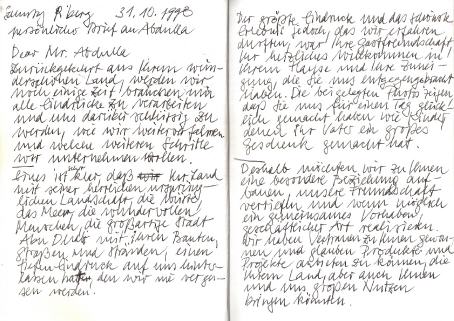 31.10.1998
persönlicher Brief an Abdulla
Dear Mr. Abdulla
Zurückgekehrt aus Ihrem wun-
derschönen Land, werden wir
noch einige Zeit brauchen um
alle Eindrücke zu verarbeiten
und uns darüber schlüssig zu
werden, wie wir weiter verfahren
und welche weiteren Schritte
wir unternehmen wollen.
Eines ist klar, daß Ihr Land
mit seiner herrlichen ursprüng-
lichen Landschaft, die Wüste,
das Meer, die wundervollen
Menschen, die großartige Stadt
Abu Dhabi mit ihren Bauten,
Straßen und Stränden, einen
tiefen Eindruck auf uns hinter-
lassen hat, den wir nie verges-
sen werden.
Der größte Eindruck und das schönste
Erlebnis jedoch, das wir erfahren
durften, war Ihre Gastfreundschaft
Ihr herzliches Willkommen in
Ihrem Hause und Ihre Zunei-
gung, die Sie uns entgegengebracht
haben. Die beigelegten Photos zeigen
daß Sie uns für einen Tag glückl
ich gemacht haben wie Kinder
denen Ihr Vater ein großes
Geschenk gemacht hat.
Deshalb möchten wir zu Ihnen
eine besondere Beziehung auf-
bauen, unsere Freundschaft
vertiefen und wenn möglich
ein gemeinsames Vorhaben,
geschäftlicher Art realisieren.
Wir haben Vertrauen zu Ihnen gewon-
nen und glauben Produkte und
Projekte anbieten zu können, die
Ihrem Land, aber auch Ihnen
und uns, großen Nutzen
bringen könnten.